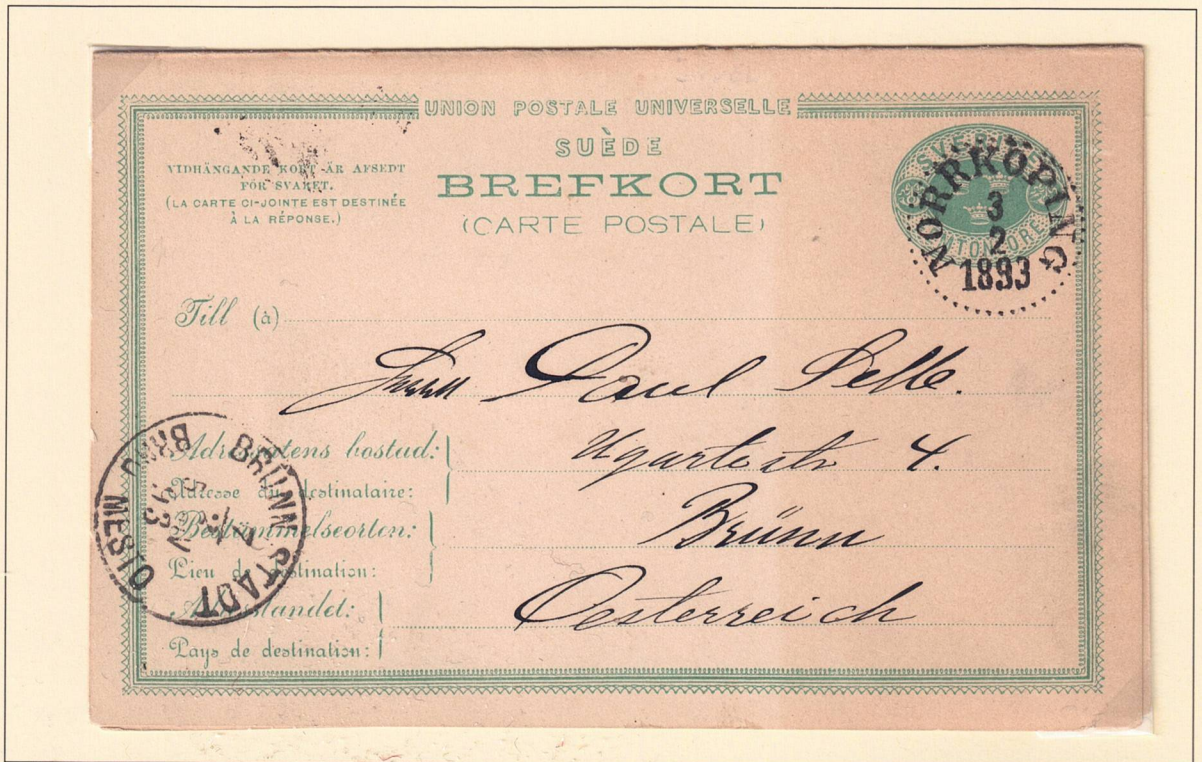 UNION POSTALE UNIVERSELLE
SUÈDE
BREFKORT
(CARTE POSTALE)
VIDHÄNGANDE KORT ÄR AFSEDT
FÖR SVARET.
(LA CARTE CI-JOINTE EST DESTINÉE
À LA RÉPONSE.)
NORRKÖPING
3
2
1893
Till (à)
Paul
4.
Adressatens bostad:
Adresse du destinataire:
Brünn
Bestämmelseorten:
Lieu de destination:
Oesterreich
Adresslandet:
Pays de destination:
BRÜNN STADT
BRNO MĚSTO